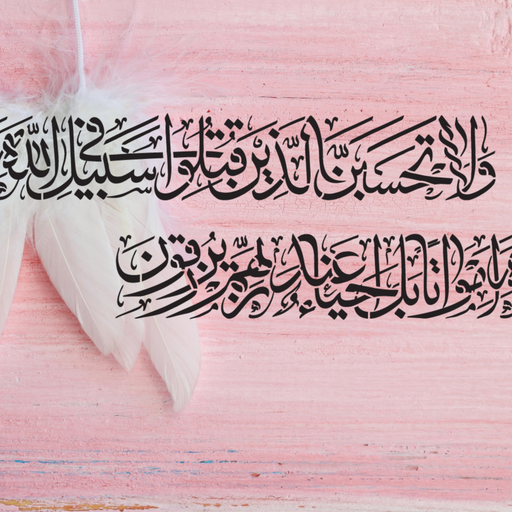 ولا تحسبن الذين قتلوا في سبيل الله
أمواتا بل أحياء عند ربهم يرزقون